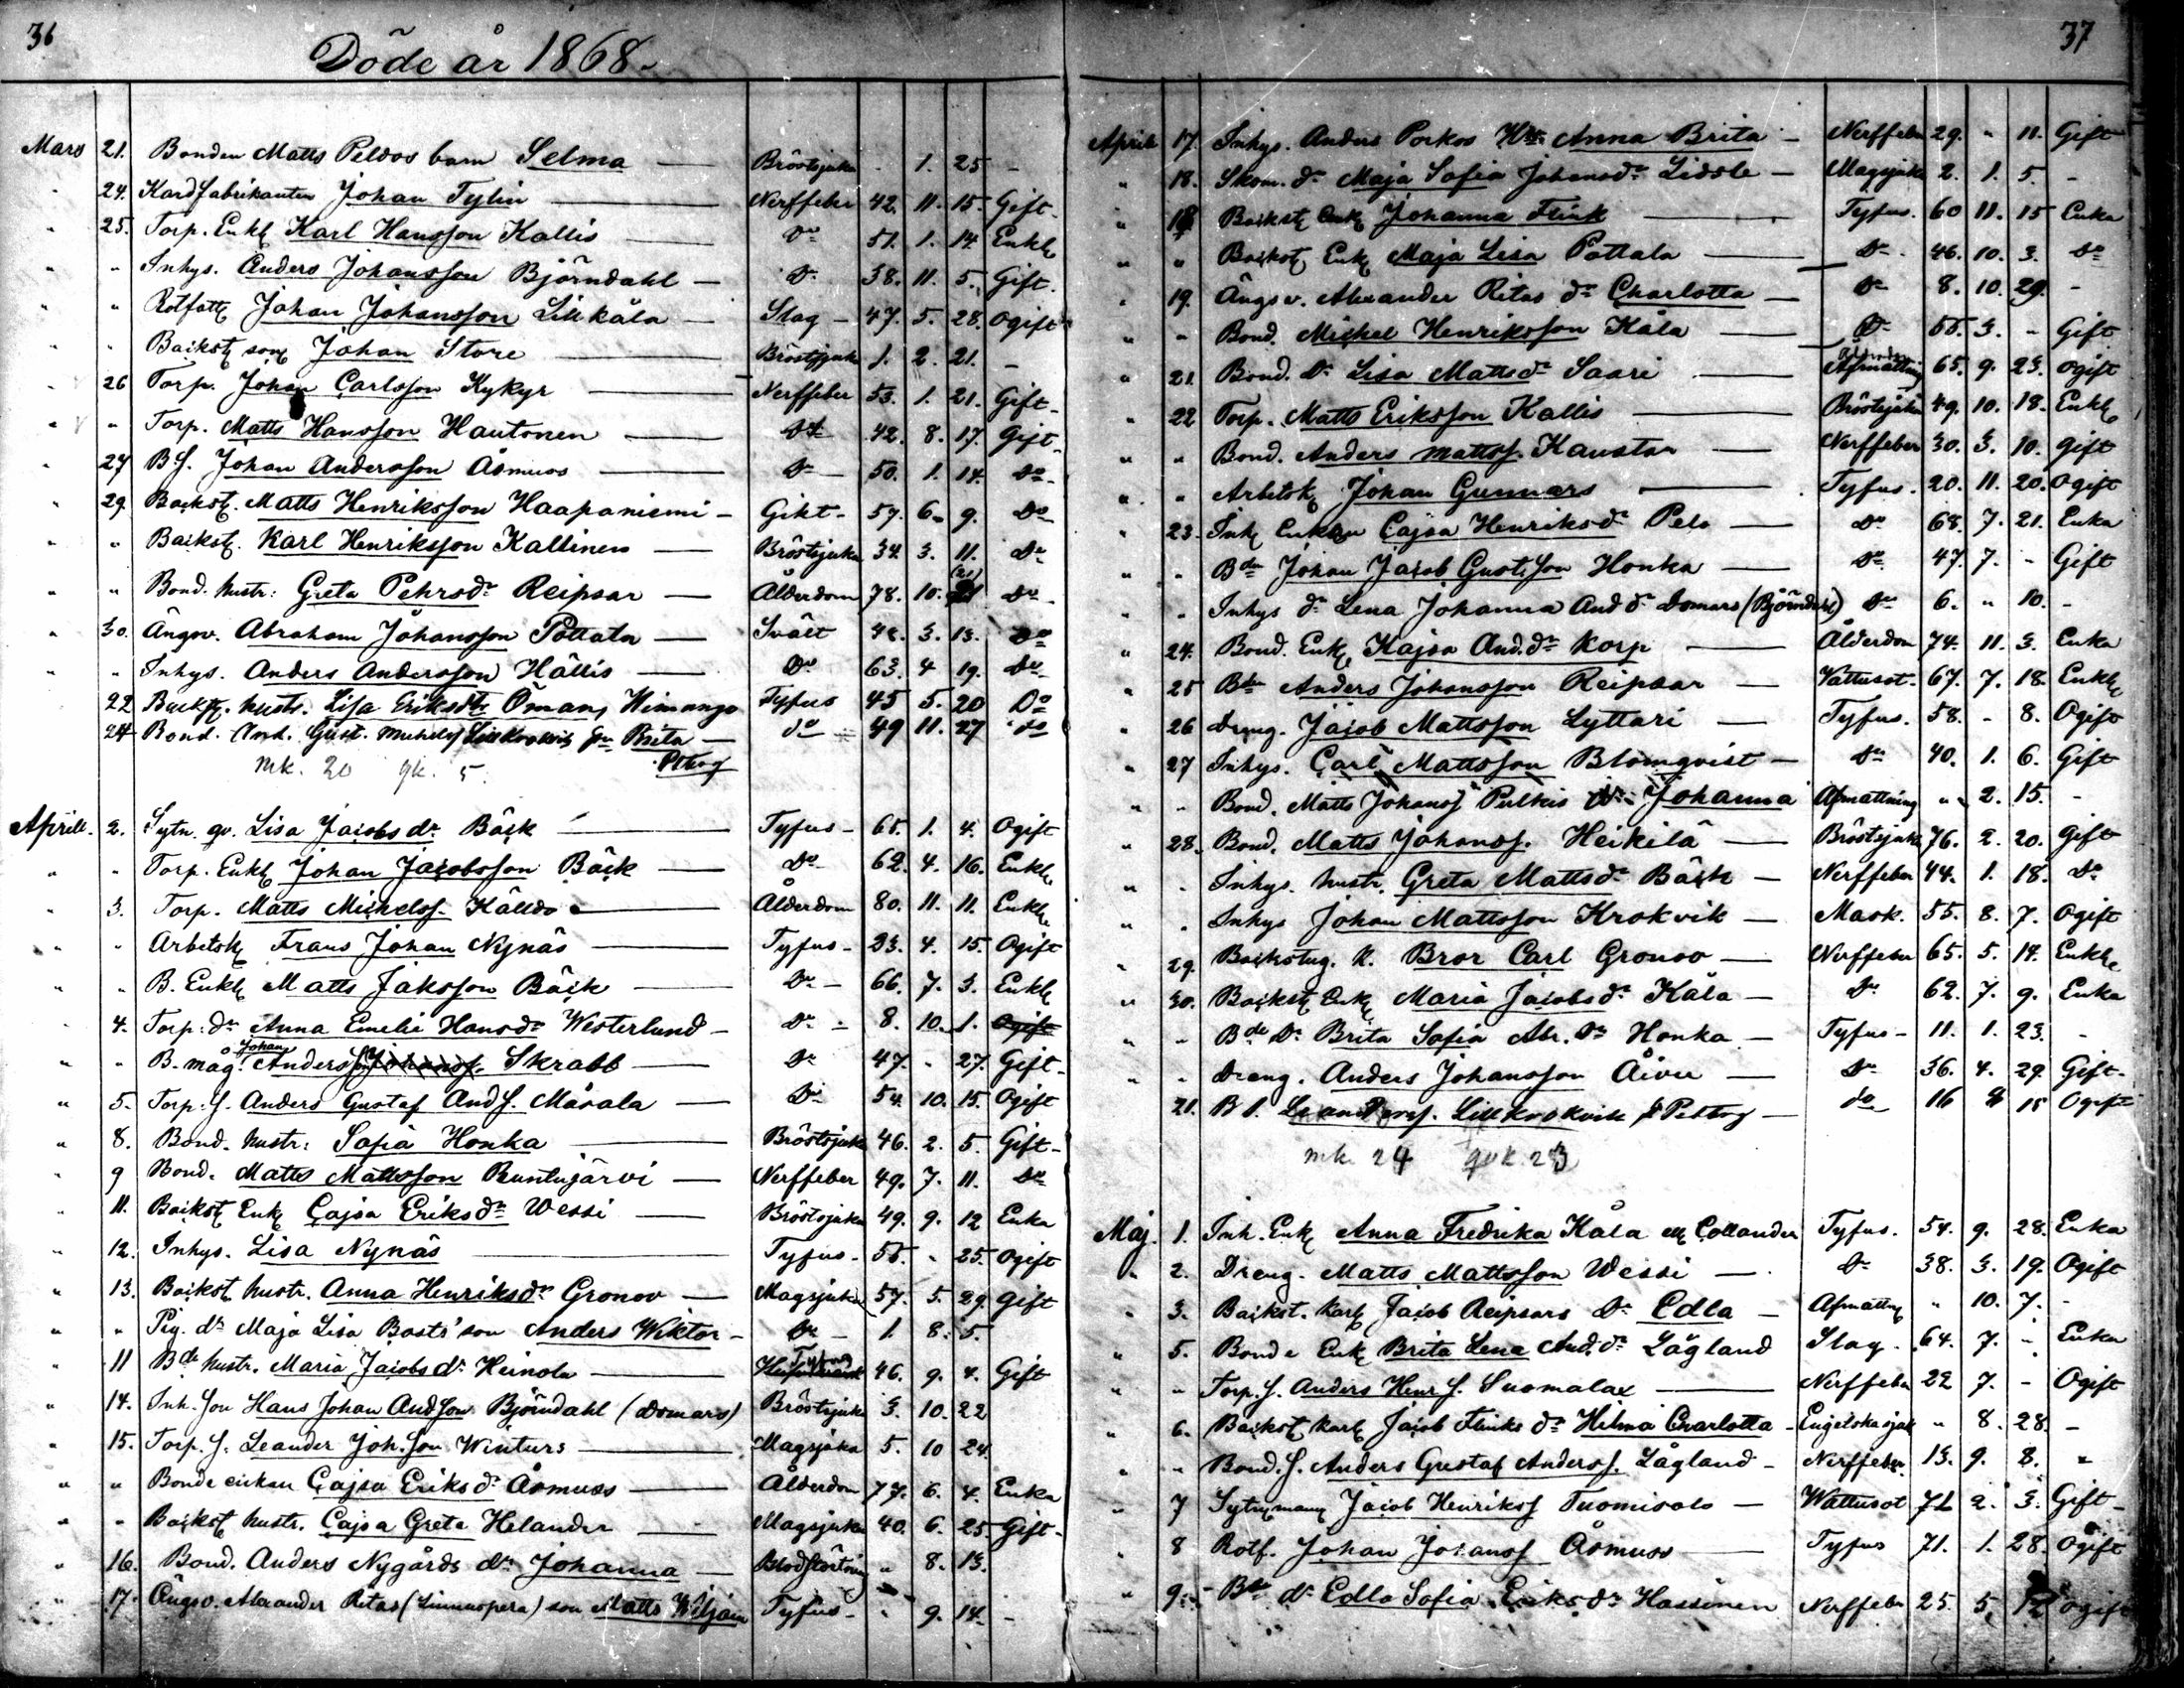 36
Döde år 1868.
Mars 21. Bonden Matts Peldos barn Selma — Bröstsjuka - 1. 25 -
" 24. Kardfabrikanten Johan Tylin — Nerffeber 42. 11. 15. Gift.
" 25. Torp. Enkl Karl Hansson Kallis — Do 51. 1. 14 Enkl
" " Inhys. Anders Johansson Björndahl — Do 38. 11. 5. Gift.
" " Rotfatt Johan Johansson Lillkåla — Slag - 47. 5. 28. Ogift
" " Backst son Johan Store — Bröstsjuka 1. 2. 21. -
" 26 Torp. Johan Carlsson Kykyr — Nerffeber 53. 1. 21. Gift-
" " Torp. Matts Hansson Hautonen — Do 42. 8. 17. Gift-
" 27 B S. Johan Andersson Åsmuss — Do 50. 1. 14. Do-
" 29. Backst. Matts Henriksson Haapaniemi - Gikt- 57. 6. 9. Do
" " Backst. Karl Henriksson Kallinen — Bröstsjuka 34. 3. 11. Do
" " Bond. hustr: Greta Pehrsdr Reipsar — Ålderdom 78. 10. 21 Do
" 30. Ängsv. Abraham Johansson Pottala — Svält 48. 3. 13. Do
" " Inhys. Anders Andersson Hällis — Do 63. 4 19. Do
22 Backst. hustr. Lisa Eriksdtr Öman, Himango Tyfus 45 5. 20 Do
24 Bond. And. Gust. Michels Lillkrokvik Brita — do 49 11. 27 do
mk. 20 qk. 5.
Aprill. 2. Sytn. qv. Lisa Jacobsdr Bäck — Tyfus- 65. 1. 4. Ogift
" " Torp. Enkl Johan Jacobsson Bäck — Do 62. 4. 16. Enkl.
" 3. Torp. Matts Michelss. Källdo — Ålderdom 80. 11. 11. Enkl.
" " Arbetsk Frans Johan Nynäs — Tyfus- 23. 4. 15. Ogift
" " B. Enkl Matts Jaksson Bäck — Do - 66. 7. 3. Enkl
" 4. Torp: dr Anna Emelie Hansdr Westerlund - Do - 8. 10. 1. Ogift
" " B. måg. Johan Andersson Johanss. Skrabb — Do 47. - 27. Gift-
" 5. Torp: S. Anders Gustaf And S. Måsala — Do 54. 10. 15. Ogift
" 8. Bond. hustr: Sofia Honka — Bröstsjuka 46. 2. 5. Gift-
" 9 Bond. Matts Mattsson Peuntujärvi — Nerffeber 49. 7. 11. Do
" 11. Backst Enk Cajsa Eriksdr Wessi — Bröstsjuka 49. 9. 12 Enka
" 12. Inhys. Lisa Nynäs — Tyfus- 55. - 25. Ogift
" 13. Backst. hustr. Anna Henriksdr Gronov — Magsjuka 57. 5. 29. Gift
" " Pig. dr Maja Lisa Bosts' son Anders Wiktor - Do - 1. 8. 5.
" 11 Bde hustr. Maria Jacobsdr Heinola — Tyfus 46. 9. 4. Gift
" 14. Inh. Son Hans Johan Andson Björndahl (Domars) Bröstsjuka 3. 10. 22
" 15. Torp. S. Leander Joh.son Winturs — Magsjuka 5. 10 24.
" " Bonde enkan Cajsa Eriksdr Åsmuss — Ålderdom 77. 6. 4. Enka
" " Backst hustr. Cajsa Greta Helander — Magsjuka 40. 6. 25. Gift-
" 16. Bond. Anders Nygårds dr Johanna — Blodstörtning " 8. 13.
" 17. Ängsv. Alexander Ritas (Linnuspera) son Matts Wiljam Tyfus- - 9. 14. -
37
Aprill 17. Inhys. Anders Porkos Hu Anna Brita - Nerffeber 29. " 11. Gift
" 18. Skom. dr Maja Sofia Johansdr Lidsle - Magsjuka 2. 1. 5. -
" 18 Backst Enk Johanna Flink — Tyfus. 60 11. 15 Enka
" " Backst. Enk Maja Lisa Pottala — Do. 46. 10. 3. Do
" 19. Ängsv. Alexander Ritas dr Charlotta — Do 8. 10. 29. -
" " Bond. Michel Henriksson Kåla — Do 55. 3. - Gift
" 21. Bond. Dr Lisa Mattsdr Saari — Ålderdom Afmattning 65. 9. 23. Ogift
" 22 Torp. Matts Eriksson Kallis — Bröstsjuka 49. 10. 18. Enkl.
" " Bond. Anders Mattss. Kaustar — Nerffeber 30. 3. 10. Gift
" " Arbetsk Johan Gunnars — Tyfus. 20. 11. 20. Ogift
" 23. Inh Enkan Cajsa Henriksdr Pelo — Do 68. 7. 21. Enka
" " Bden Johan Jacob Gusts.son Honka — Do 47. 7. - Gift
" " Inhys dr Lena Johanna And dr Domars (Björndahl) Do 6. " 10. -
" 24. Bond. Enk Kajsa And.dr Korp — Ålderdom 74. 11. 3. Enka
" 25 Bde Anders Johansson Reipsar — Vattusot. 67. 7. 18. Enkl
" 26 Dreng. Jacob Mattsson Lyttari — Tyfus. 58. - 8. Ogift
" 27 Inhys. Carl Mattsson Blomqvist — Do 40. 1. 6. Gift
" " Bond. Matts Johanss Pulkis dr Johanna Afmattning " 2. 15. -
" 28. Bond. Matts Johanss. Heikilä — Bröstsjuka 76. 2. 20. Gift
" " Inhys. hustr. Greta Mattsdr Bäck — Nerffeber 44. 1. 18. Do
" " Inhys Johan Mattsson Krokvik — Mask. 55. 8. 7. Ogift
" 29. Backstug. K. Bror Carl Gronov — Nerffeber 65. 5. 14. Enkl
" 30. Backst Enk Maria Jacobsdr Kåla — Do 62. 7. 9. Enka
" " Bde Dr Brita Sofia Abr. Dr Honka — Tyfus- 11. 1. 23. -
" " Dreng. Anders Johansson Åivu — Do 36. 4. 29. Gift-
21. B S. Leander s. Lillkrokvik — do 16 8 15 Ogift
mk. 24 qvk. 23
Maj. 1. Inh. Enk Anna Fredrika Kåla ell Collander Tyfus. 54. 9. 28. Enka
" 2. Dreng. Matts Mattsson Wessi — Do 38. 3. 19. Ogift
" 3. Backst. Karl Jacob Reipsars Dr Edla — Afmattn " 10. 7. -
" 5. Bonde Enk Brita Lena And.dr Lågland Slag. 64. 7. - Enka
" " Torp. S. Anders Henr S. Suomalax — Nerffeber 22 7. - Ogift
" 6. Backst Karl Jacob Flinks dr Hilma Charlotta - Engelska sjuk " 8. 28. -
" " Bond. S. Anders Gustaf Anderss. Lågland - Nerffeber. 13. 9. 8. "
" 7 Sytn.man Jacob Henrikss Tuomisalo — Wattusot 71 2. 3. Gift-
" 8 Rotf. Johan Johanss Åsmuss — Tyfus 71. 1. 28. Ogift
" 9. Bde dr Edla Sofia Eriksdr Hassinen Nerffeber 25. 5. 12 Ogift